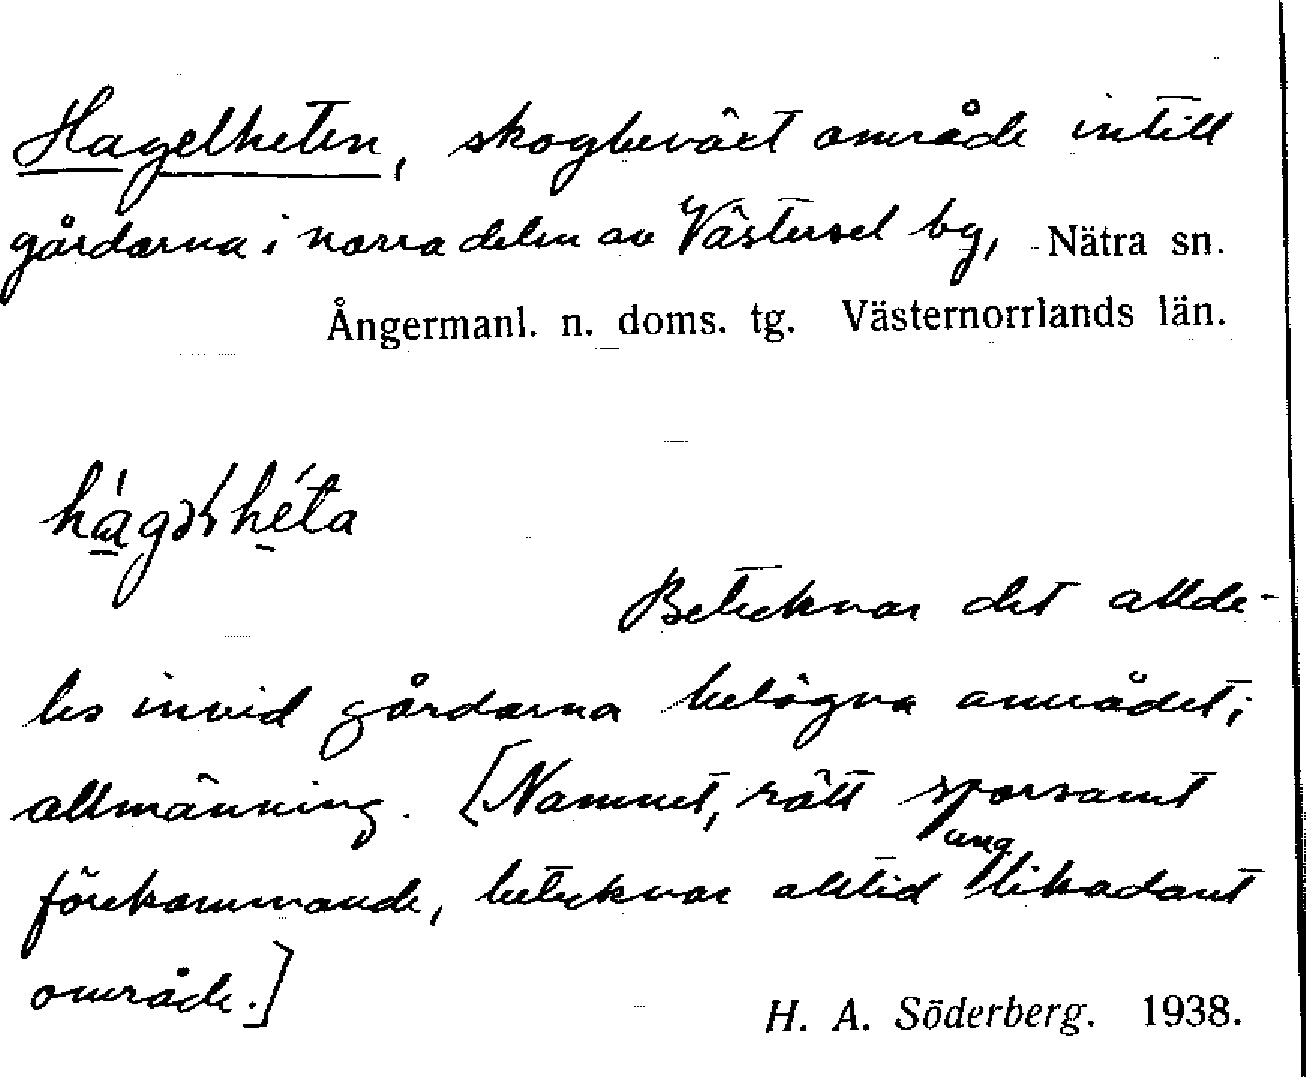 Hagelheten, skogbeväxt område intill
gårdarna i norra delen av Västersel by, Nätra sn.
Ångermanl. n. doms. tg. Västernorrlands län.
Betecknar det allde-
les invid gårdarna belägna området;
allmänning. [Namnet, rätt sparsamt
ung.
förekommande, betecknar alltid likadant
område.]
H. A. Söderberg. 1938.